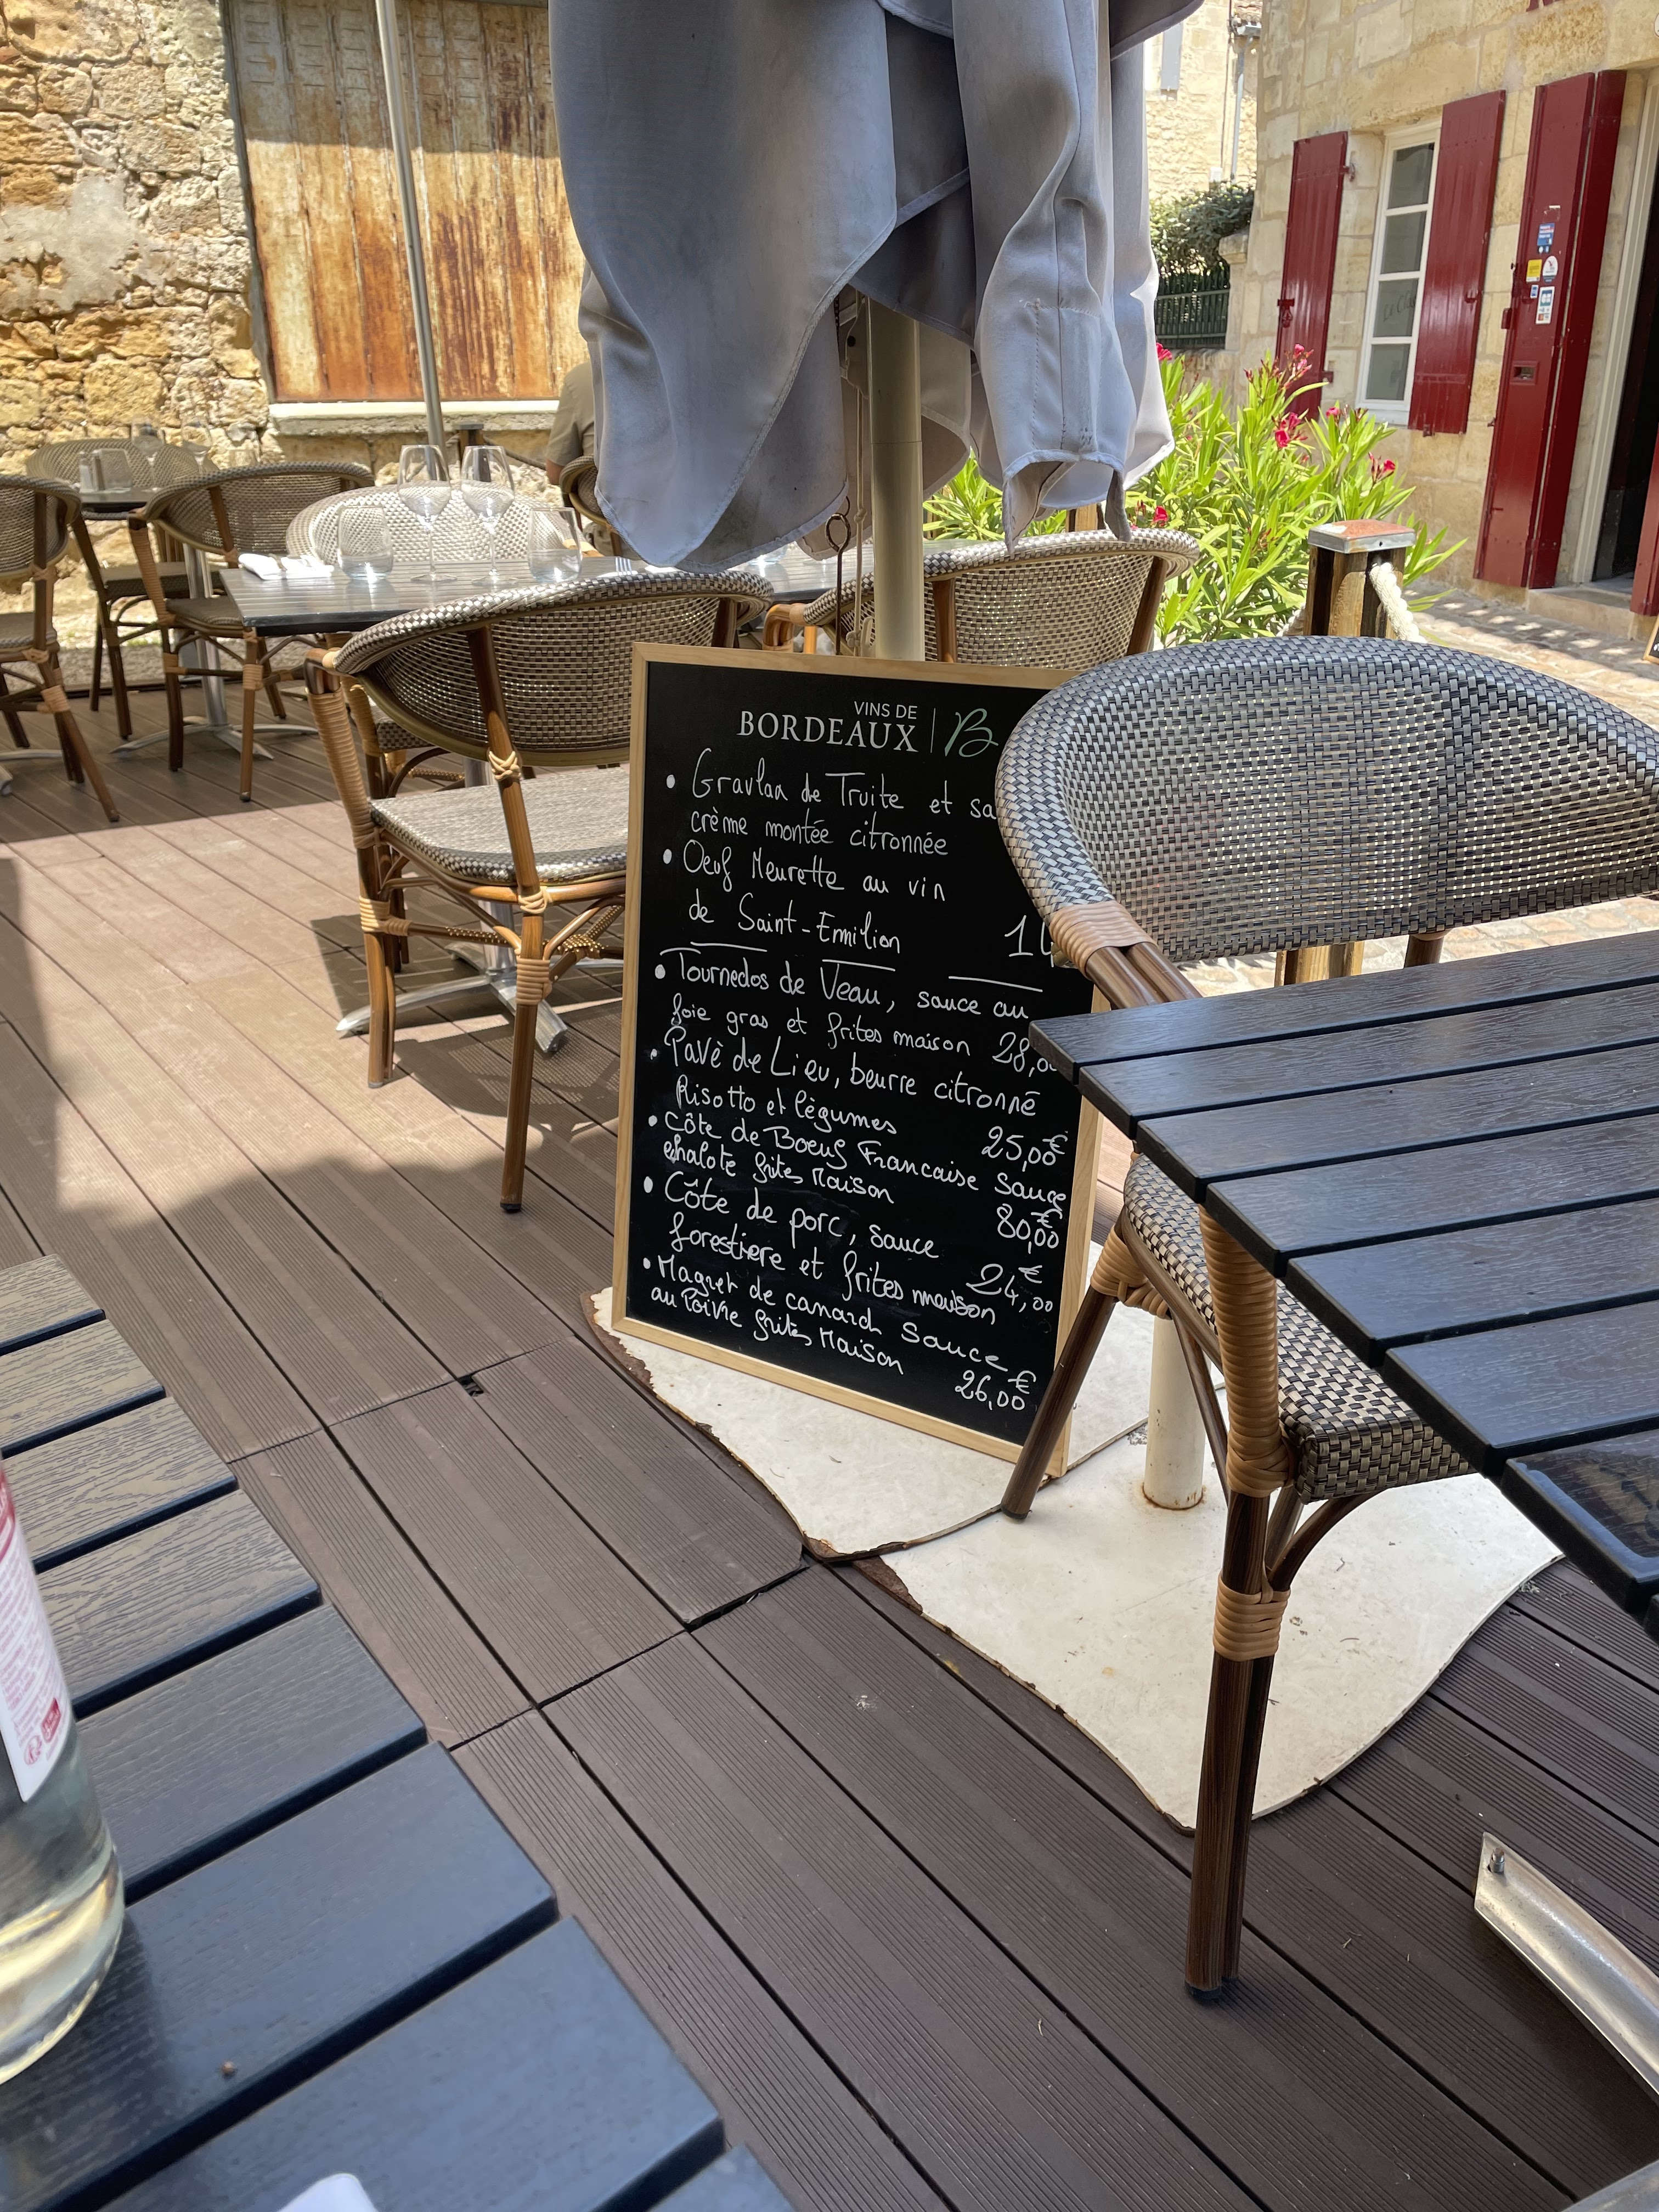 VINS DE
BORDEAUX B
• Gravlaa de Truite et
crème montée citronnée
• Oeuf Meurette au vin
de Saint-Emilion
• Tournedos de Veau, sauce au
foie gras et frites maison 28,
• Pavè de Lieu, beurre citronné
Risotto et lègumes 25,00€
• Côte de Boeuf Francaise Sauce
echalote frites Maison 80,00€
• Côte de porc, sauce
forestiere et frites maison 24,00€
• Magret de canard Sauce
au Poivre frites Maison 26,00€